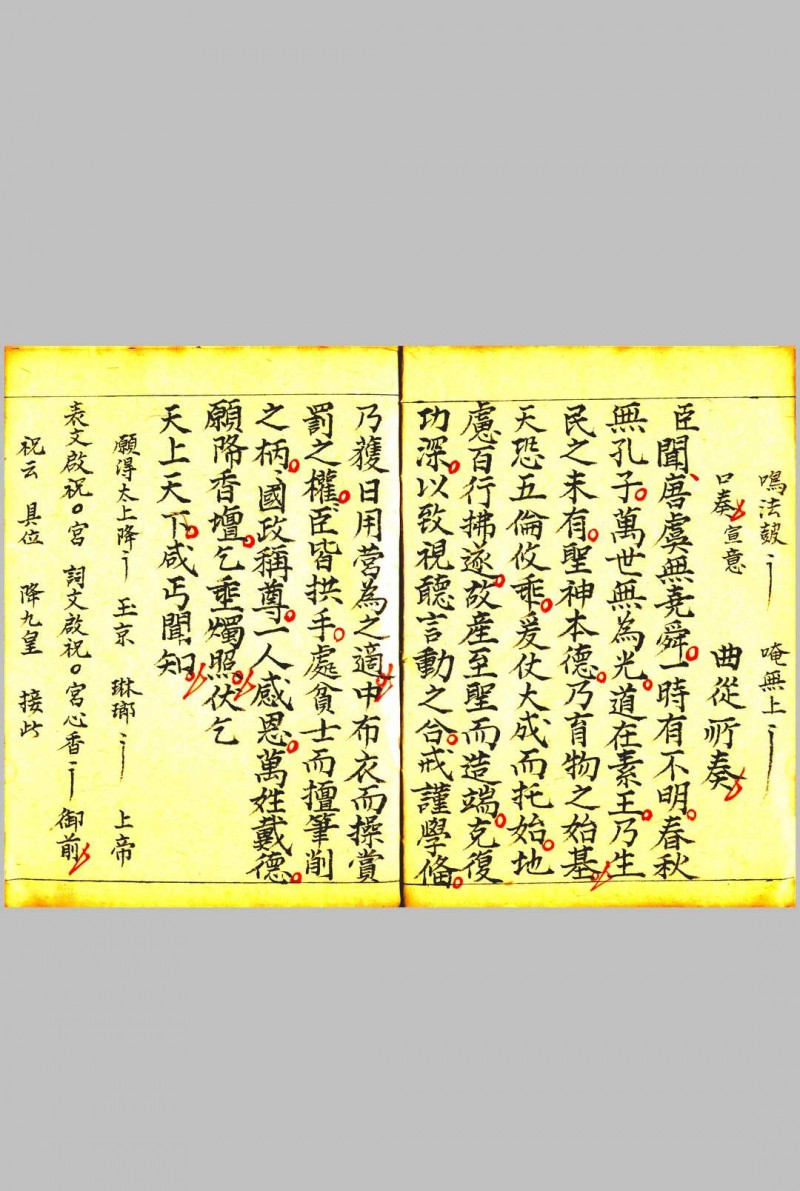 鳴法鼓 唵無上
口奏 宣意 曲從所奏
臣聞唐虞無堯舜一時有不明春秋
無孔子萬世無為光道在素王乃生
民之未有聖神本德乃育物之始基
天恐五倫攸乖爰仗大成而托始地
慮百行拂逐故產至聖而造端克復
功深以致視聽言動之合戒謹學俻
乃獲日用营為之適中布衣而操賞
罰之權臣皆拱手處貧士而擅筆削
之柄國政稱尊一人感恩萬姓戴德
願降香壇乞垂燭照伏乞
天上天下咸丐聞知
願得太上降 玉京 琳瑯 上帝
表文啟祝宮 詞文啟祝宮心香 御前
祝云 具位 降九皇 接此